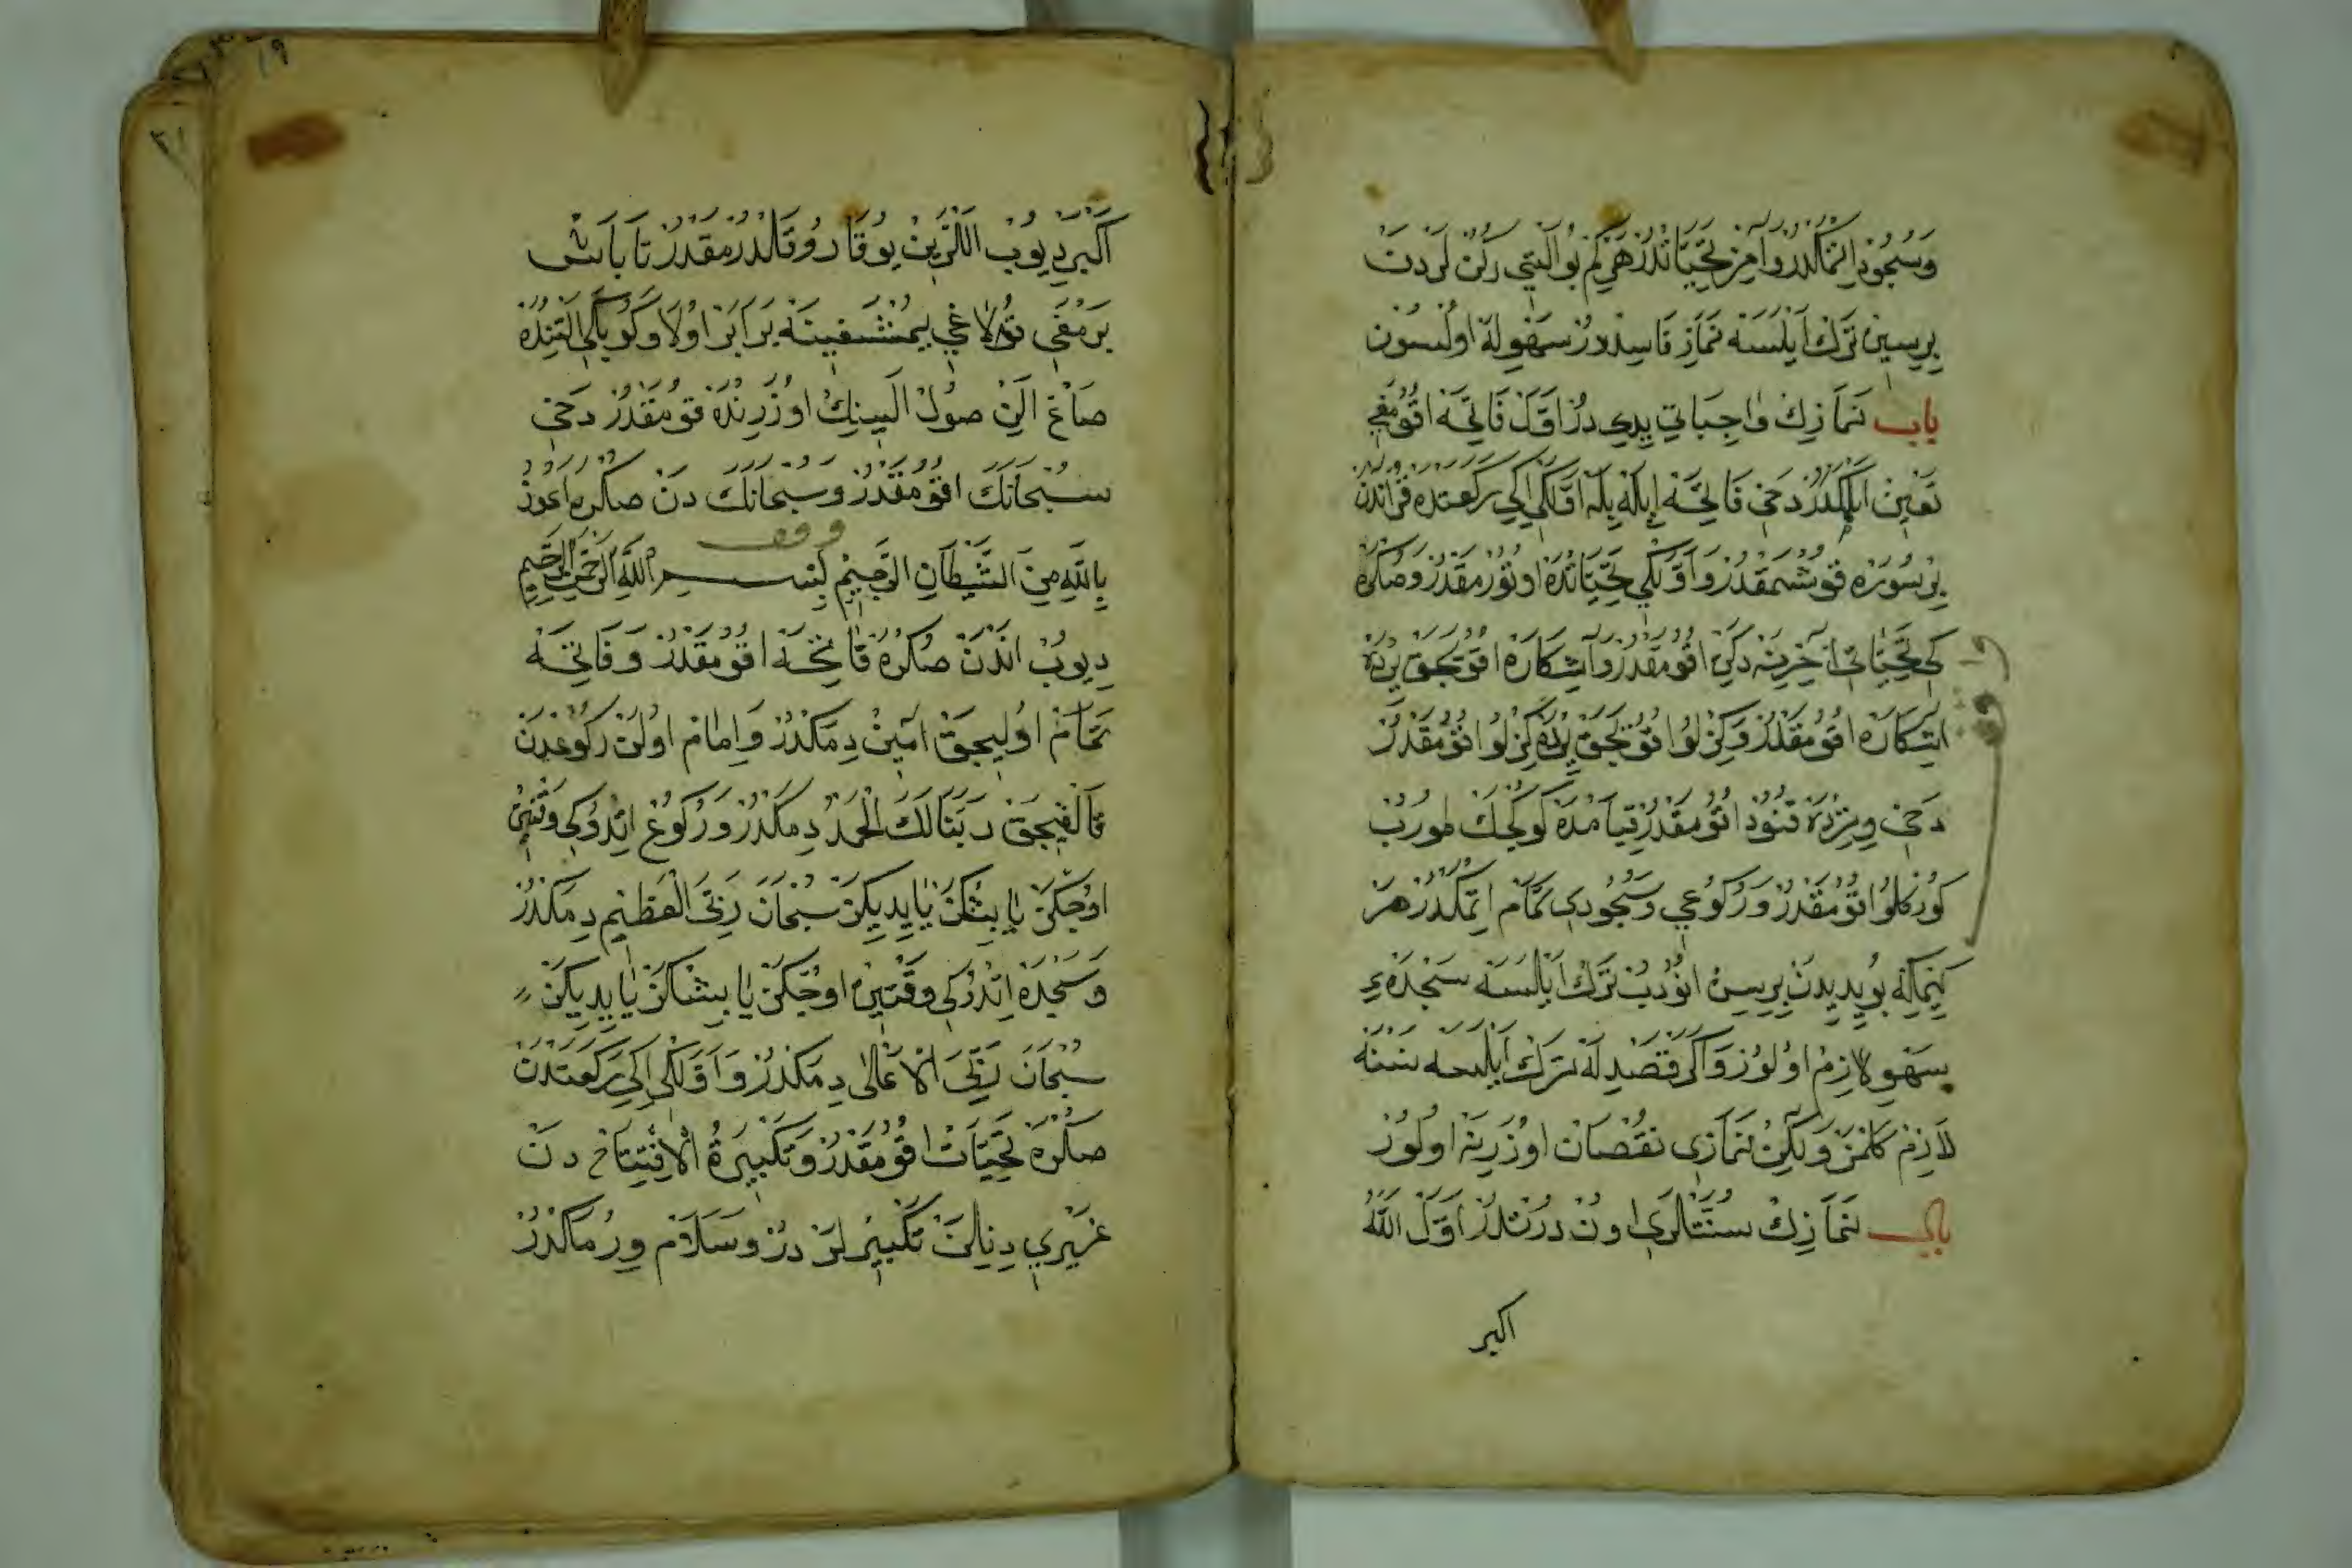 وَسُجُودْ اِتْمَكْدُرْ وَآخِرْ تَحِيَّاتْدُرْ هَرْ كِمْ بُو اَلْتِي رُكُنْ لَرْدَنْ
بِرِسِينْ تَرْكْ اَيْلَسَه نَمَازِ فَاسِدْدُرْ سَهْوِلَه اُولْسُونْ
باب نَمَازِكْ وَاجِبَاتِي يِدِي دُرْ اَوَّلْ فَاتِحَه اُقُومَقْ
تَعْيِينْ اَيْلَمَكْدُرْ دَخِي فَاتِحَه اِيلَه بِلَه اَوَّلْكِي اِكِي رَكْعَتْدَه قُرْاٰنْدَنْ
بِرْ سُورَه قُوشْمَقْدُرْ وَاَوَّلْكِي تَحِيَّاتْدَه اُوتُورْمَقْدُرْ وَصُكْرَه
كِي تَحِيَّاتِ آخِرِينَه دَكِنْ اُقُومَقْدُرْ وَآشِكَارَه اُقُويَجَقْ يَرْدَه
آشِكَارَه اُقُومَقْدُرْ وَكِزْلُو اُقُويَجَقْ يَرْدَه كِزْلُو اُقُومَقْدُرْ
دَخِي وِتِرْدَه قُنُوتْ اُقُومَقْدُرْ قِيَامْدَه كَوْكْجَكْ طُورُبْ
كُوزَكْلُو اُقُومَقْدُرْ وَرُكُوعِي وَسُجُودِي تَمَامْ اِتْمَكْدُرْ هَرْ
كِيمْكِه بُو يِدِيدَنْ بِرِسِينْ اُنُودُبْ تَرْكْ اَيْلَسَه سَجْدَهءِ
سَهْوِ لَازِمْ اُولُورْ وَاَكَرْ قَصْدِلَه تَرْكْ اَيْلَسَه نَسْنَه
لَازِمْ كَلْمَزْ وَلٰكِنْ نَمَازِي نُقْصَانْ اُوزَرِينَه اُولُورْ
باب نَمَازِكْ سُنَّتْلَرِي اُونْ دُرْتْدُرْ اَوَّلْ اَللّٰهُ
اكبر
اَكْبَرْ دِيُوبْ اَللَّرِينْ يُوقَارُو قَالْدُرْمَقْدُرْ تَا بَاشْ
بَرْمَغِي قُولَاغِي يِمْشَغِينَه بَرَابَرْ اُولَا وَكُوبَكِي اَلْتِنْدَه
صَاغْ اَلِنْ صُولْ اَلِينِكْ اُوزَرِنْدَه قُومَقْدُرْ دَخِي
سُبْحَانَكَ اُقُومَقْدُرْ وَسُبْحَانَكَ دَنْ صُكْرَه اَعُوذُ
وقف
بِاللّٰهِ مِنَ الشَّيْطَانِ الرَّجِيمْ بِسْمِ اللّٰهِ الرَّحْمٰنِ الرَّحِيمِ
دِيُوبْ اَنْدَنْ صُكْرَه فَاتِحَه اُقُومَقْدُرْ وَفَاتِحَه
تَمَامْ اُولِيجَقْ اٰمِينْ دِمَكْدُرْ وَاِمَامْ اُولَنْ رُكُوعْدَنْ
قَالْقِيجَقْ رَبَّنَا لَكَ الْحَمْدُ دِمَكْدُرْ وَرُكُوعْ اِتْدُوكِي وَقْتِنْ
اُوچْكَزْ يَا بِشْكَزْ يَا يِدِيكَزْ سُبْحَانَ رَبِّيَ الْعَظِيمِ دِمَكْدُرْ
وَسَجْدَه اِتْدُوكِي وَقْتِينْ اُوچْكَزْ يَا بِشْكَزْ يَا يِدِيكَزْ
سُبْحَانَ رَبِّيَ الْاَعْلٰى دِمَكْدُرْ وَاَوَّلْكِي اِكِي رَكْعَتْدَنْ
صُكْرَه تَحِيَّاتْ اُقُومَقْدُرْ وَتَكْبِيرَةُ الْاِفْتِتَاحْ دَنْ
غَيْرِي دِنِلَنْ تَكْبِيرْلَرْ دُرْ وَسَلَامْ وِرْمَكْدُرْ